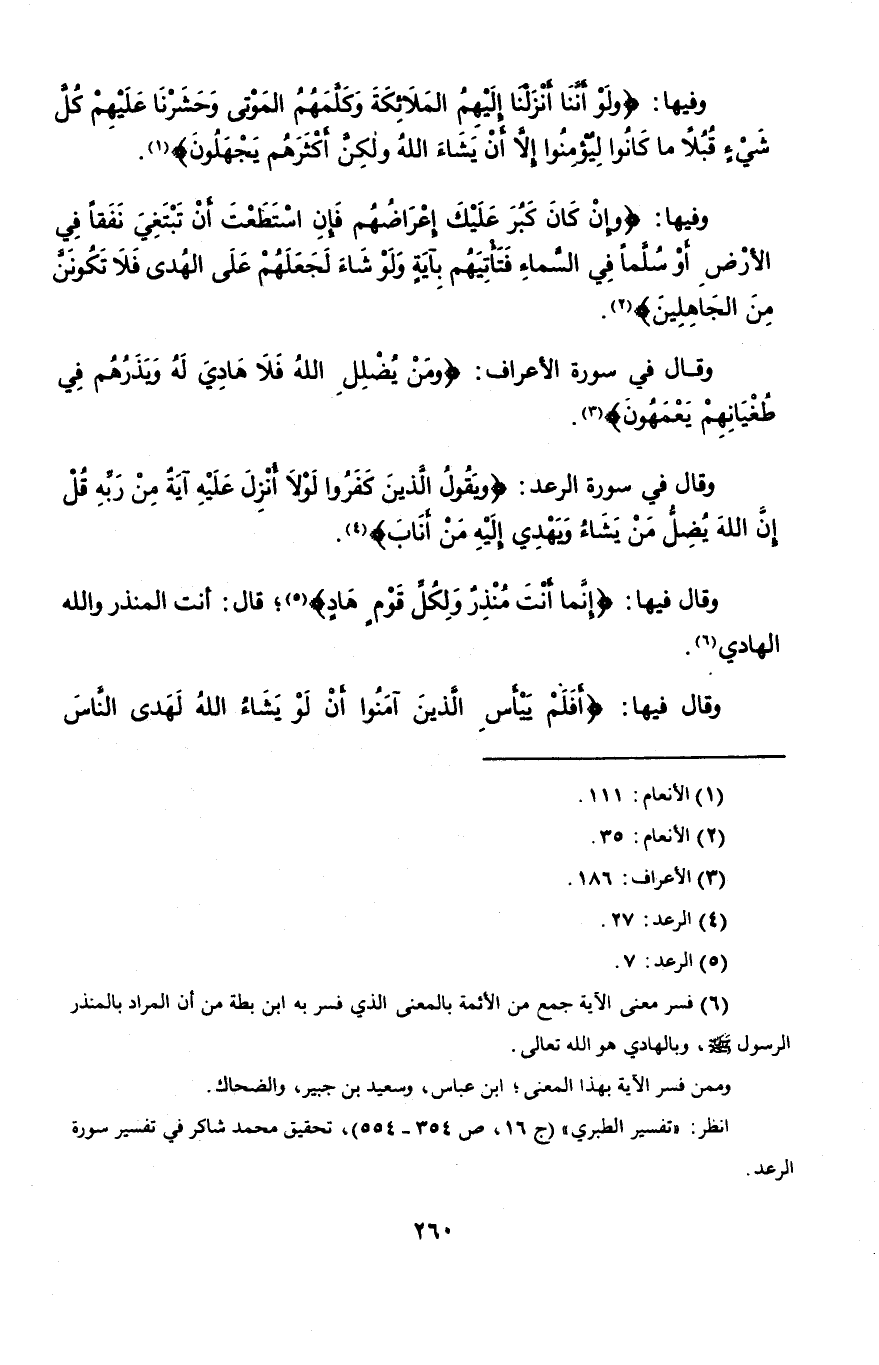 وفيها: ﴿ولَوْ أَنَّنَا أَنْزَلْنَا إِلَيْهِمُ المَلَائِكَةَ وَكَلَّمَهُمُ المَوْتى وَحَشَرْنَا عَلَيْهِمْ كُلَّ
شَيْءٍ قُبُلًا ما كَانُوا لِيُؤْمِنُوا إِلَّا أَنْ يَشَاءَ اللهُ ولٰكِنَّ أَكْثَرَهُم يَجْهَلُونَ﴾(١).
وفيها: ﴿وإِنْ كَانَ كَبُرَ عَلَيْكَ إِعْرَاضُهُم فَإِنِ اسْتَطَعْتَ أَنْ تَبْتَغِيَ نَفَقاً فِي
الأَرْضِ أَوْ سُلَّماً فِي السَّماءِ فَتَأْتِيَهُم بِآيَةٍ وَلَوْ شَاءَ لَجَعَلَهُمْ عَلَى الهُدى فَلَا تَكُونَنَّ
مِنَ الجَاهِلِينَ﴾(٢).
وقال في سورة الأعراف: ﴿ومَنْ يُضْلِلِ اللهُ فَلَا هَادِيَ لَهُ وَيَذَرُهُم فِي
طُغْيَانِهِمْ يَعْمَهُونَ﴾(٣).
وقال في سورة الرعد: ﴿ويَقُولُ الَّذينَ كَفَرُوا لَوْلَا أُنْزِلَ عَلَيْهِ آيَةٌ مِنْ رَبِّهِ قُلْ
إِنَّ اللهَ يُضِلُّ مَنْ يَشَاءُ وَيَهْدِي إِلَيْهِ مَنْ أَنَابَ﴾(٤).
وقال فيها: ﴿إِنَّما أَنْتَ مُنْذِرٌ وَلِكُلِّ قَوْمٍ هَادٍ﴾(٥)؛ قال: أنت المنذر والله
الهادي(٦).
وقال فيها: ﴿أَفَلَمْ يَيْأَسِ الَّذينَ آمَنُوا أَنْ لَوْ يَشَاءُ اللهُ لَهَدى النَّاسَ
(١) الأنعام: ١١١.
(٢) الأنعام: ٣٥.
(٣) الأعراف: ١٨٦.
(٤) الرعد: ٢٧.
(٥) الرعد: ٧.
(٦) فسر معنى الآية جمع من الأئمة بالمعنى الذي فسر به ابن بطة من أن المراد بالمنذر
الرسول ﷺ، وبالهادي هو الله تعالى.
وممن فسر الآية بهذا المعنى؛ ابن عباس، وسعيد بن جبير، والضحاك.
انظر: «تفسير الطبري» (ج ١٦، ص ٣٥٤ ـ ٥٥٤)، تحقيق محمد شاكر في تفسير سورة
الرعد.
٢٦٠